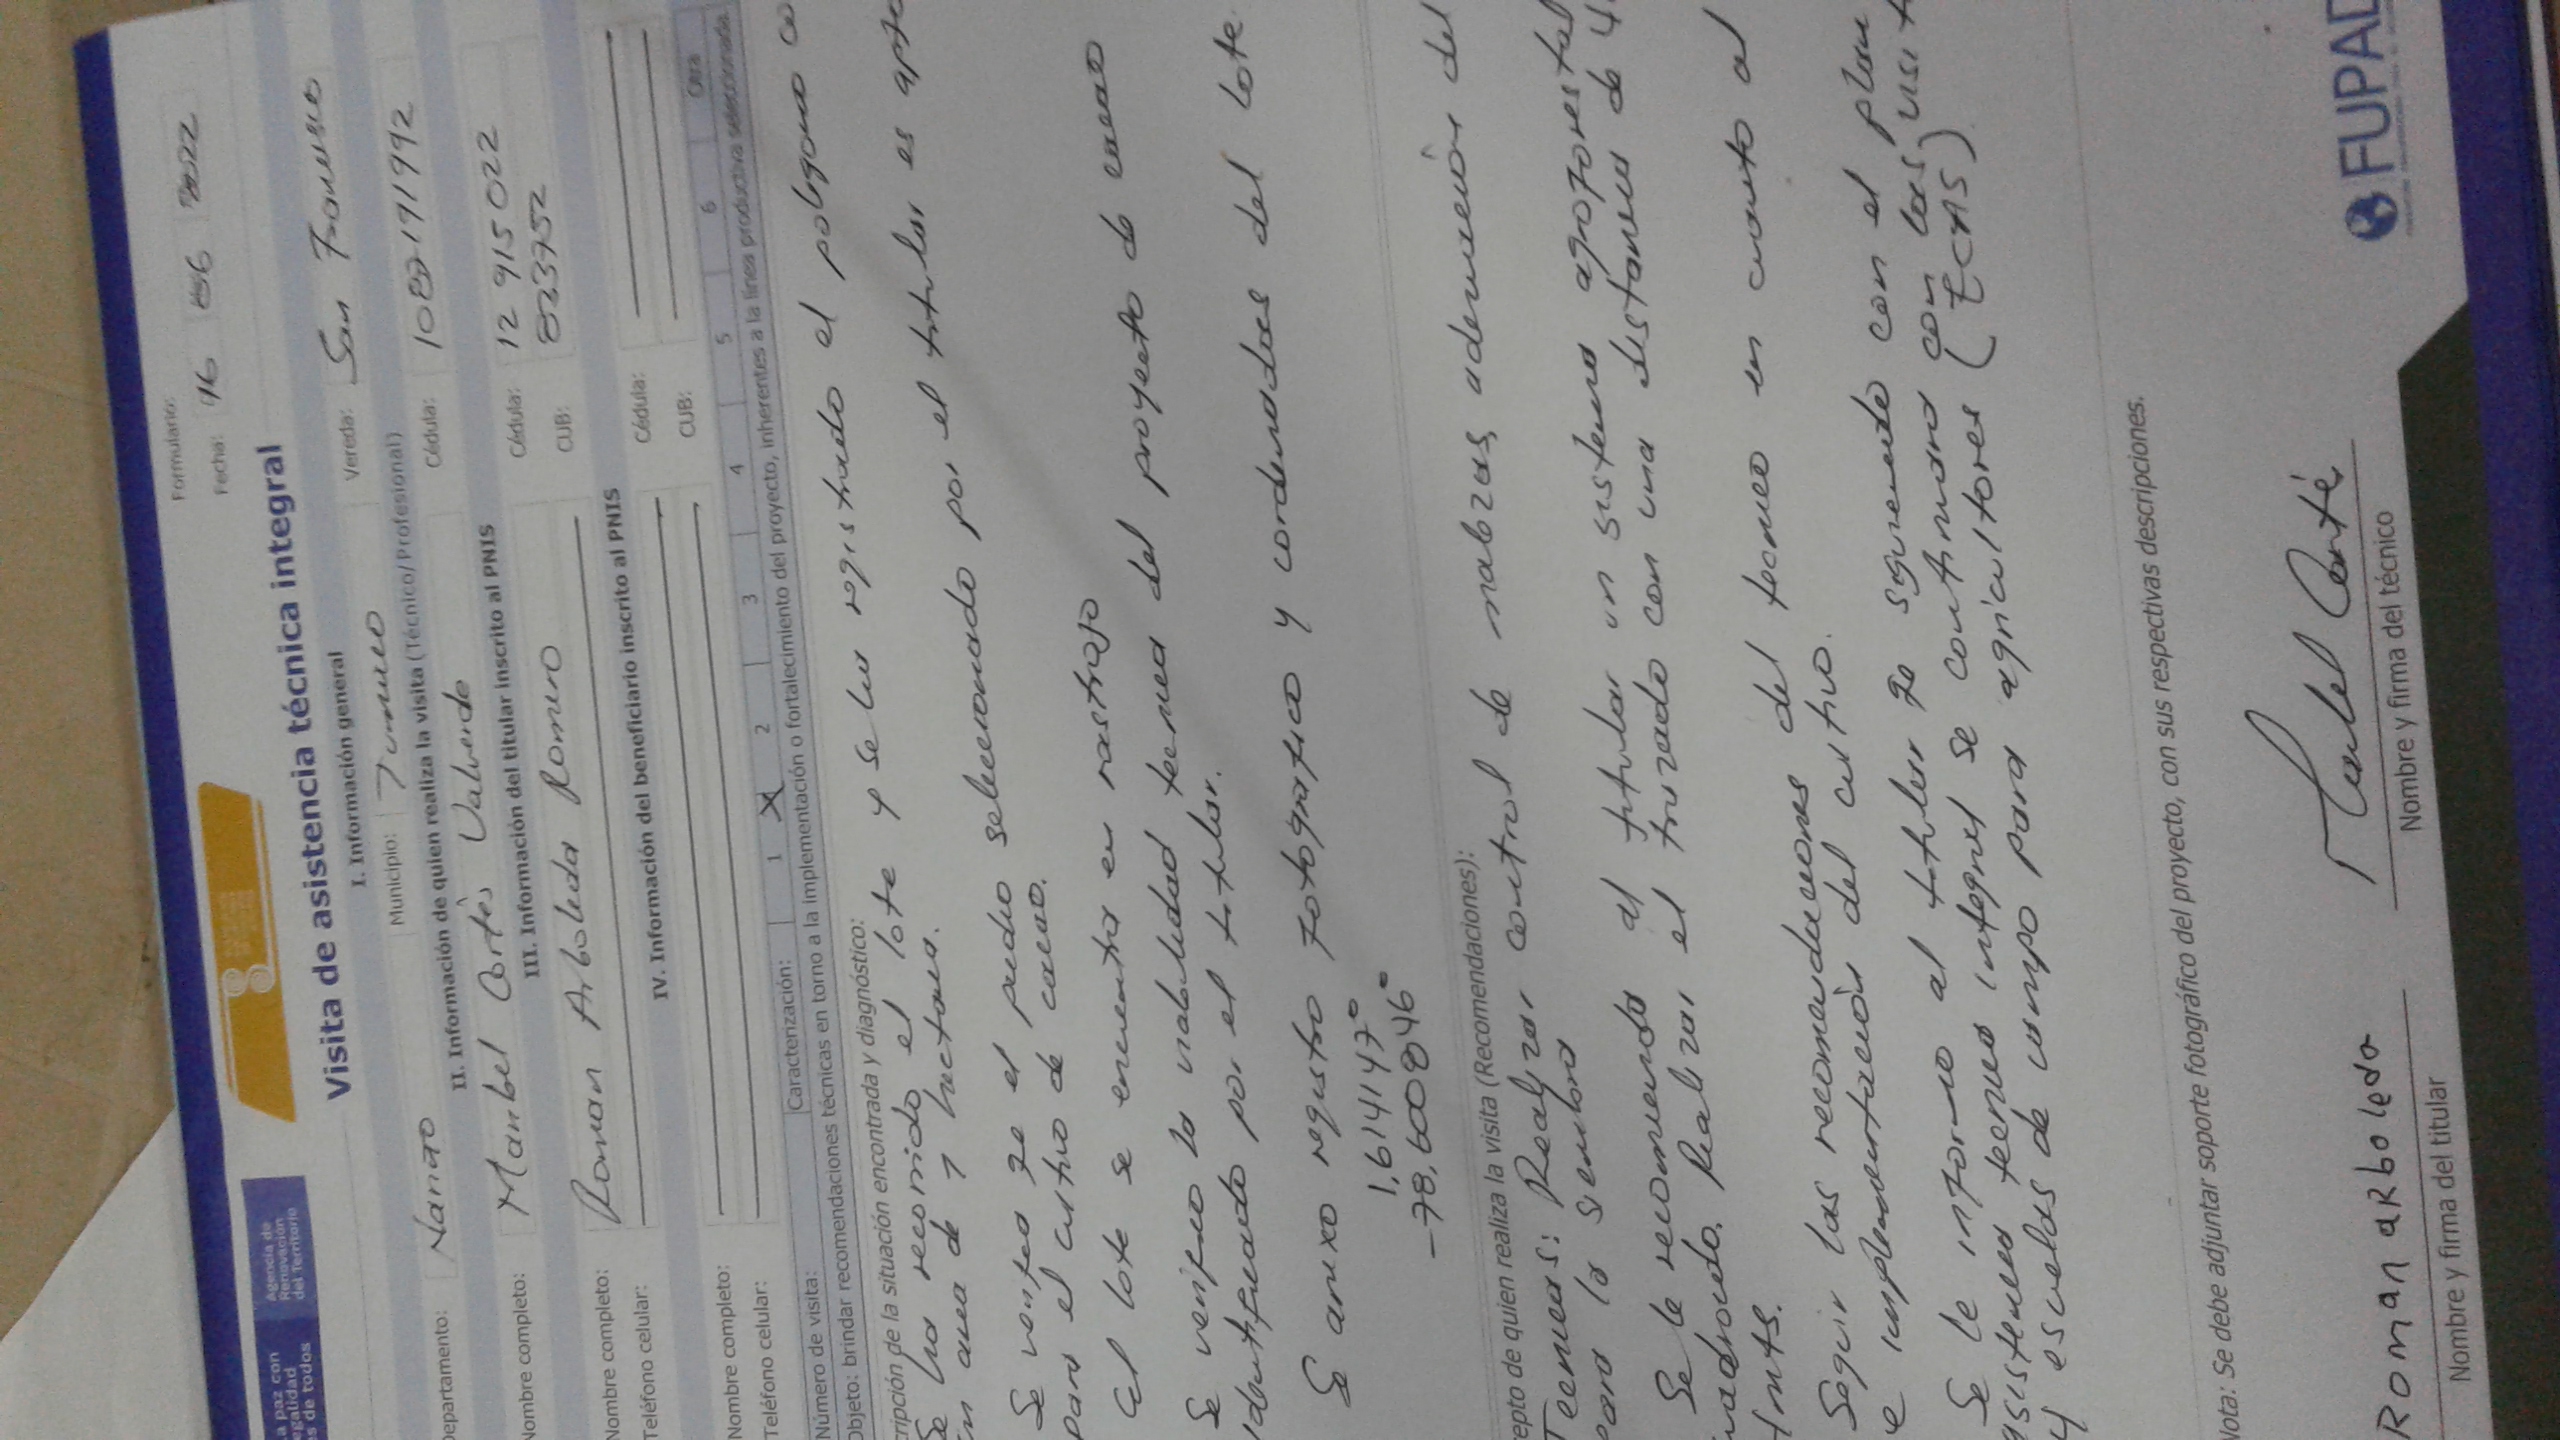 la paz con
legalidad
es de todos
Agencia de
Renovación
del Territorio
Formulario:
Fecha: 16 2022
Visita de asistencia técnica integral
I. Información general
Departamento: Nariño Municipio: Tumaco Vereda: San Francisco
II. Información de quien realiza la visita (Técnico/Profesional)
Nombre completo: Maribel Cortès Valverde Cédula:
III. Información del titular inscrito al PNIS
Nombre completo: Roman Arboleda Romero Cédula: 12 915 022
Teléfono celular: CUB: 823752
IV. Información del beneficiario inscrito al PNIS
Nombre completo: Cédula:
Teléfono celular: CUB:
Número de visita: Caracterización: 1 X 2 3 4 5 6 Otra
Objeto: brindar recomendaciones técnicas en torno a la implementación o fortalecimiento del proyecto, inherentes a la línea productiva seleccionada.
cripción de la situación encontrada y diagnóstico:
Se ha recorrido el lote y se ha registrado el poligono co
un area de 1 hectarea.
Se verifico qe el predio seleccionado por el titular es apto
para el cultivo de cacao.
El lote se encuentra en rastrojo
Se verifico la viabilidad tecnica del proyecto de cacao
identificado por el titular.
Se anexo registro fotografico y cordenadas del lote
1,614147°
-78,600846°
epto de quien realiza la visita (Recomendaciones):
Tecnicas: Realizar control de malezas, adecuación del
para la siembra
Se le recomienda al titular un sistema agroforestal
cuadrado. Realizar el trazado con una distancia de 4
mts.
Seguir las recomendaciones del tecnico en cuanto al
e implementación del cultivo.
Se le informo al titular qe seguimiento con el plan
asistencia tecnica integral se continuara con las visit
y escuelas de campo para agricultores (ECAS)
Nota: Se debe adjuntar soporte fotográfico del proyecto, con sus respectivas descripciones.
Roman aRboleda
Nombre y firma del titular
Maribel Cortés
Nombre y firma del técnico
FUPAD